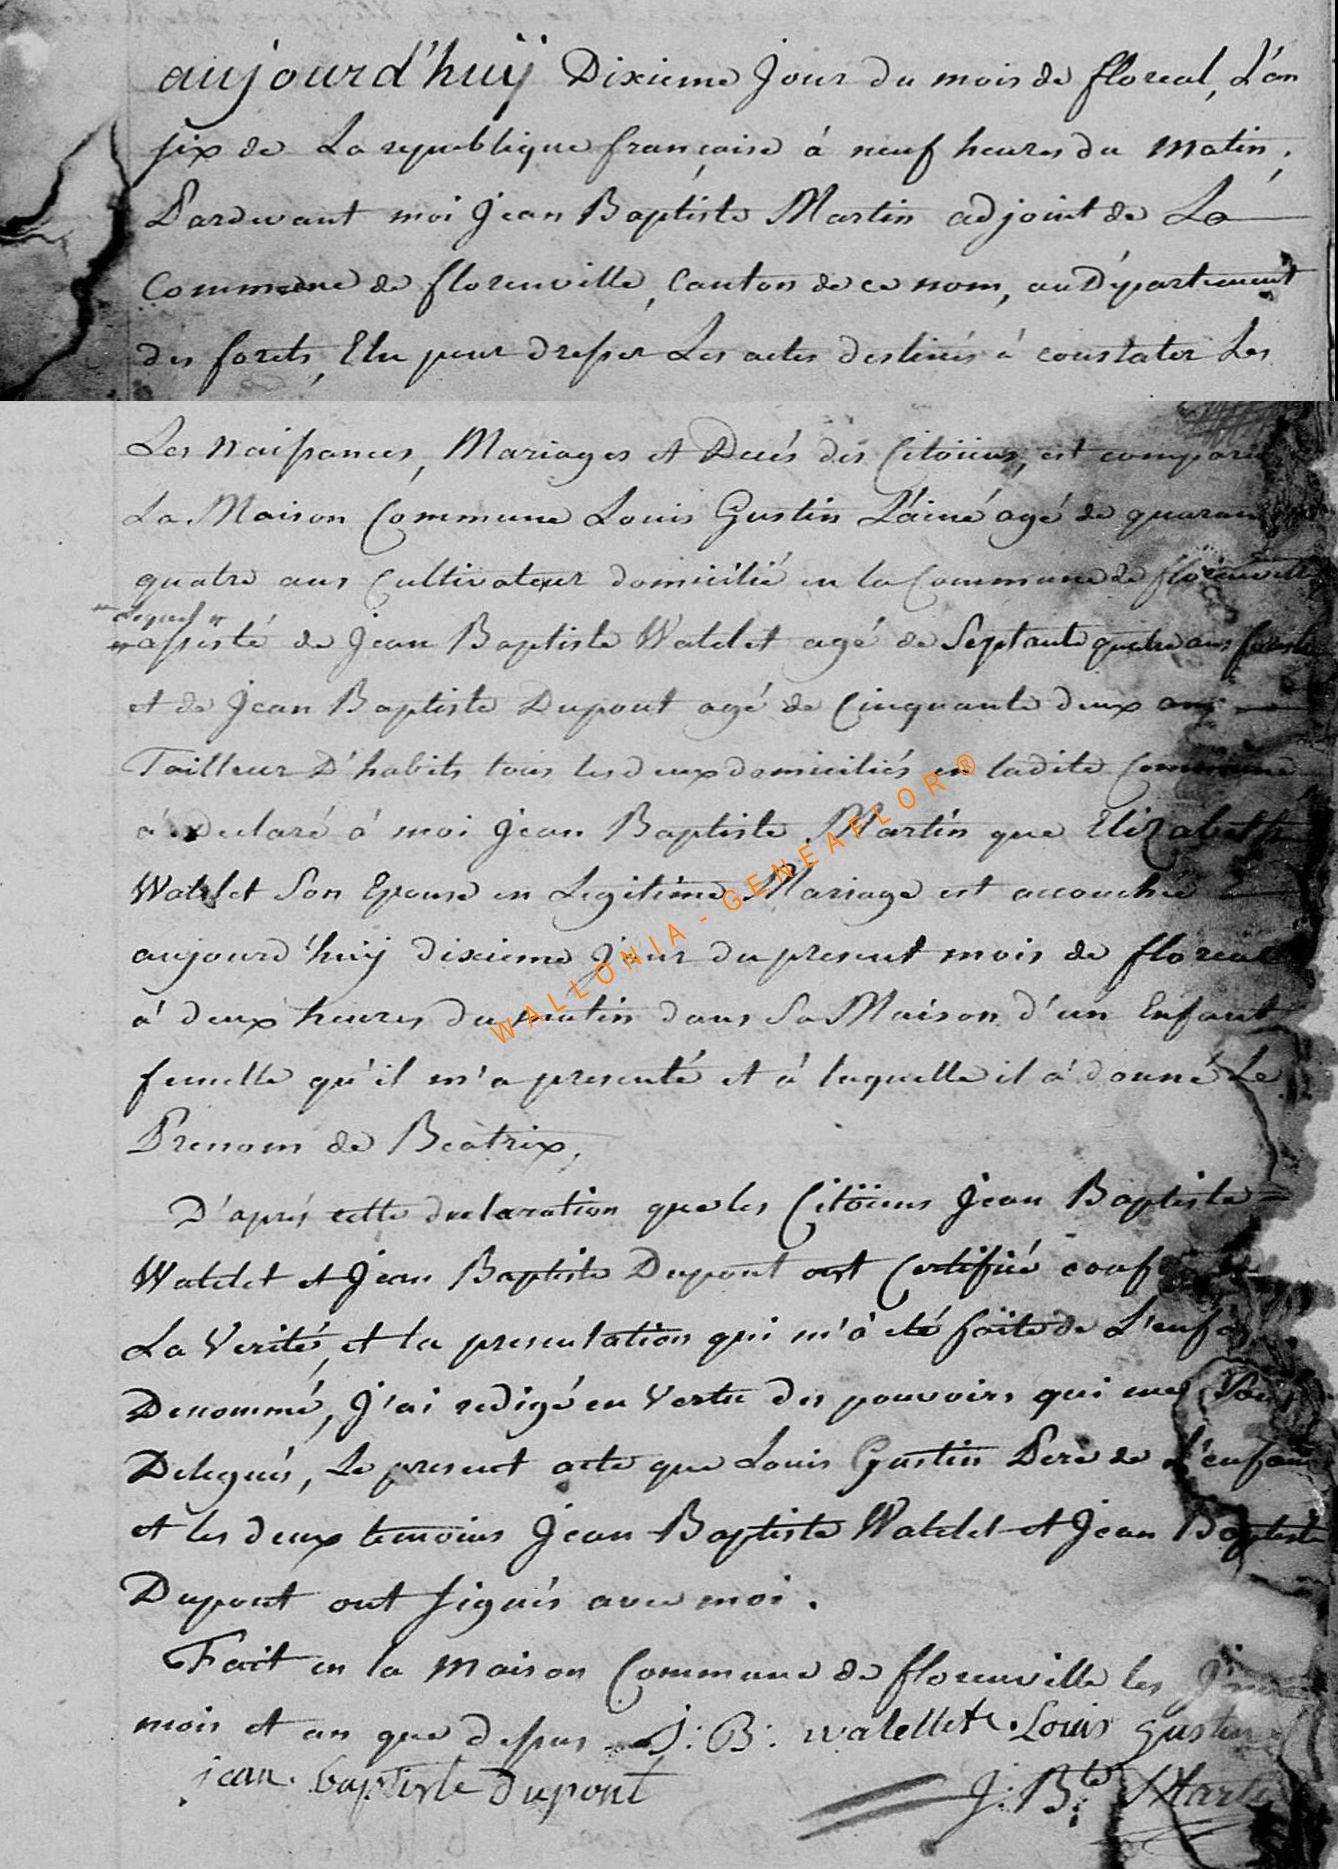 aujourd'huÿ Dixieme Jour du mois de floreal, L'an
six de La republique française à neuf heures du matin,
Pardevant moi Jean Baptiste Martin adjoint de La
Commune de florenville, Canton de ce nom, au Département
des forets, Elu pour dresser Les actes destinés à constater Les
Les Naissances, Mariages et Decés des Citoïens, est comparu
La Maison Commune Louis Gustin L'ainé agé de
quatre ans Cultivateur domicilié en la Commune de florenville
lequel
assisté de Jean Baptiste Watelet agé de Septante quatre ans
et de Jean Baptiste Dupont agé de Cinquante deux ans
Tailleur D'habits tous les deux domiciliés en ladite Commune
à Declaré à moi Jean Baptiste Martin que Elizabeth
Watelet Son Epouse en Legitime Mariage est accouchée
aujourd'huÿ dixieme Jour du present mois de floreal
à deux heures du matin dans Sa Maison d'un Enfant
femelle qu'il m'a presenté et à laquelle il à donné Le
Prenom de Beatrix,
D'aprés cette declaration que les Citoïens Jean Baptiste
Watelet et Jean Baptiste Dupont ont Certifié
La Verité, et la presentation qui m'à eté faïte de L'enfant
Denommé, J'ai redigé en Vertu des pouvoirs qui me Sont
Delegués, Le present acte que Louis Gustin Pere de L'enfant
et les deux temoins Jean Baptiste Watelet et Jean Baptiste
Dupont ont signés avec moi.
Fait en la Maison Commune de florenville les Jour
mois et an que dessus J: B: watellet Louis Gustin
jean baptiste Dupont J: Bte Martin
WALLONIA - GENEAFLOR ®